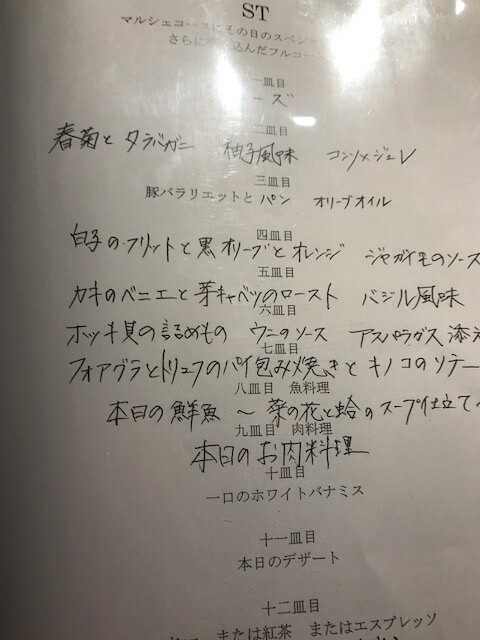 ST
マルシェコースにその日のスペシ
さらに 込んだフルコー
一皿目
ーズ
二皿目
春菊とタラバガニ 柚子風味 コンソメジュレ
三皿目
豚バラリエットとパン オリーブオイル
四皿目
白子のフリットと黒オリーブとオレンジ ジャガイモのソース
五皿目
カキのベニエと芽キャベツのロースト バジル風味
六皿目
ホッキ貝の詰めもの ウニのソース アスパラガス添え
七皿目
フォアグラとトリュフのパイ包み焼きとキノコのソテー
八皿目 魚料理
本日の鮮魚 〜 菜の花と蛤のスープ仕立て
九皿目 肉料理
本日のお肉料理
十皿目
一口のホワイトバナミス
十一皿目
本日のデザート
十二皿目
または紅茶 またはエスプレッソ